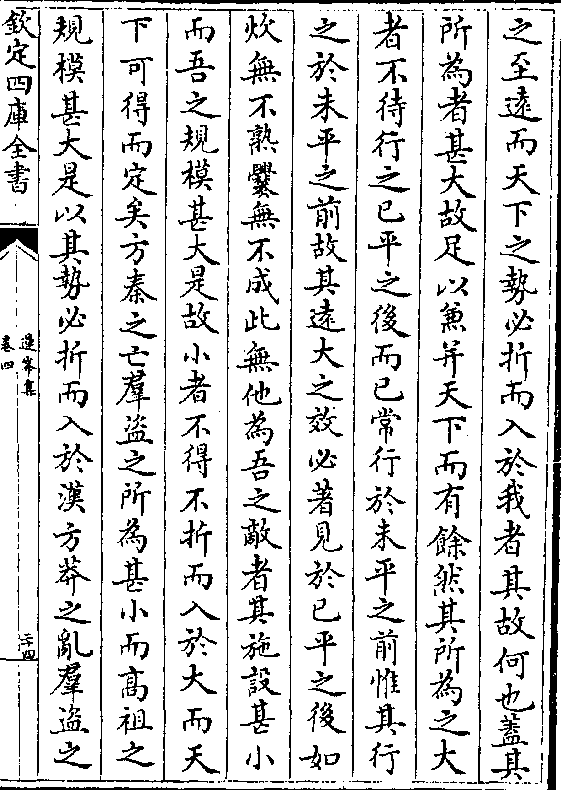 之至遠而天下之勢必折而入於我者其故何也蓋其
所為者甚大故足以兼并天下而有餘然其所為之大
者不待行之已平之後而已常行於未平之前惟其行
之於未平之前故其遠大之效必著見於已平之後如
炊無不熟爨無不成此無他為吾之敵者其施設甚小
而吾之規模甚大是故小者不得不折而入於大而天
下可得而定矣方秦之亡羣盜之所為甚小而高祖之
規模甚大是以其勢必折而入於漢方莽之亂羣盜之
欽定四庫全書
卷四
二十四